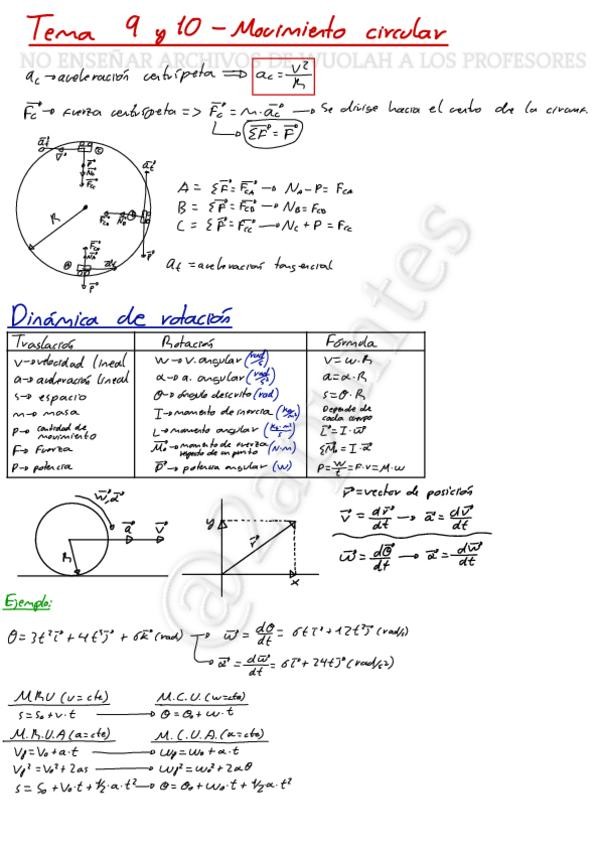 Tema 9 y 10 - Movimiento circular
NO ENSEÑAR ARCHIVOS DE WUOLAH A LOS PROFESORES
ac → aceleración centrípeta ⟹ ac = V²/R
Fc → Fuerza centrípeta => Fc = m·ac → Se dirige hacia el centro de la circunf.
ΣF = F
A = ΣF = FcA → NA - P = FcA
B = ΣF = FcB → NB = FcB
C = ΣF = Fcc → Nc + P = Fcc
at = aceleración tangencial
R
Dinámica de rotación
Traslación Rotación Fórmula
v → velocidad lineal w → v. angular (rad/s) V = w·R
a → aceleración lineal α → a. angular (rad/s²) a = α·R
s → espacio θ → ángulo descrito (rad) s = θ·R
m → masa I → momento de inercia (kg/m²) Depende de cada cuerpo
P → cantidad de movimiento L → momento angular (kg·m²/s) L = I·w
F → Fuerza Mo → momento de fuerza respecto de un punto (N·m) ΣMo = I·α
P → potencia P → potencia angular (W) P = W/t = F·v = M·w
w, α
a v
R
y r x
r = vector de posición
v = dr/dt → a = dv/dt
w = dθ/dt → α = dw/dt
Ejemplo:
θ = 3t²i + 4t³j + 6k (rad) → w = dθ/dt = 6ti + 12t²j (rad/s)
α = dw/dt = 6i + 24tj (rad/s²)
M.R.U (v = cte) M.C.U. (w = cte)
s = s₀ + v·t → θ = θ₀ + w·t
M.R.U.A (a = cte) M.C.U.A. (α = cte)
Vf = V₀ + a·t → wf = w₀ + α·t
Vf² = V₀² + 2as → wf² = w₀² + 2αθ
s = s₀ + V₀·t + 1/2·a·t² → θ = θ₀ + w₀·t + 1/2α·t²
@2apuntes